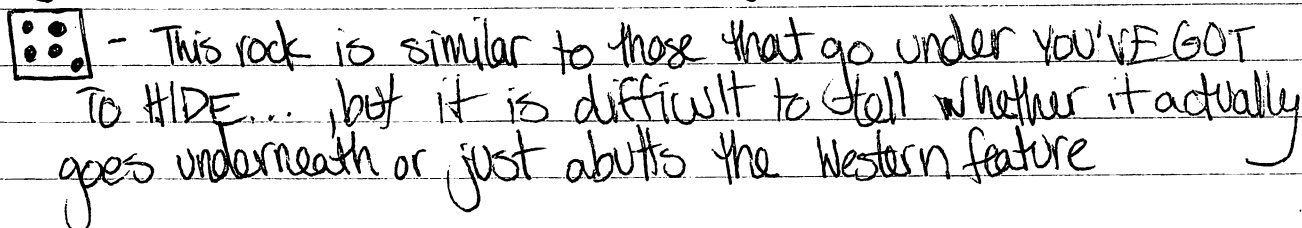 - This rock is similar to those that go under YOU'VE GOT
TO HIDE..., but it is difficult to tell whether it actually
goes underneath or just abutts the Western feature